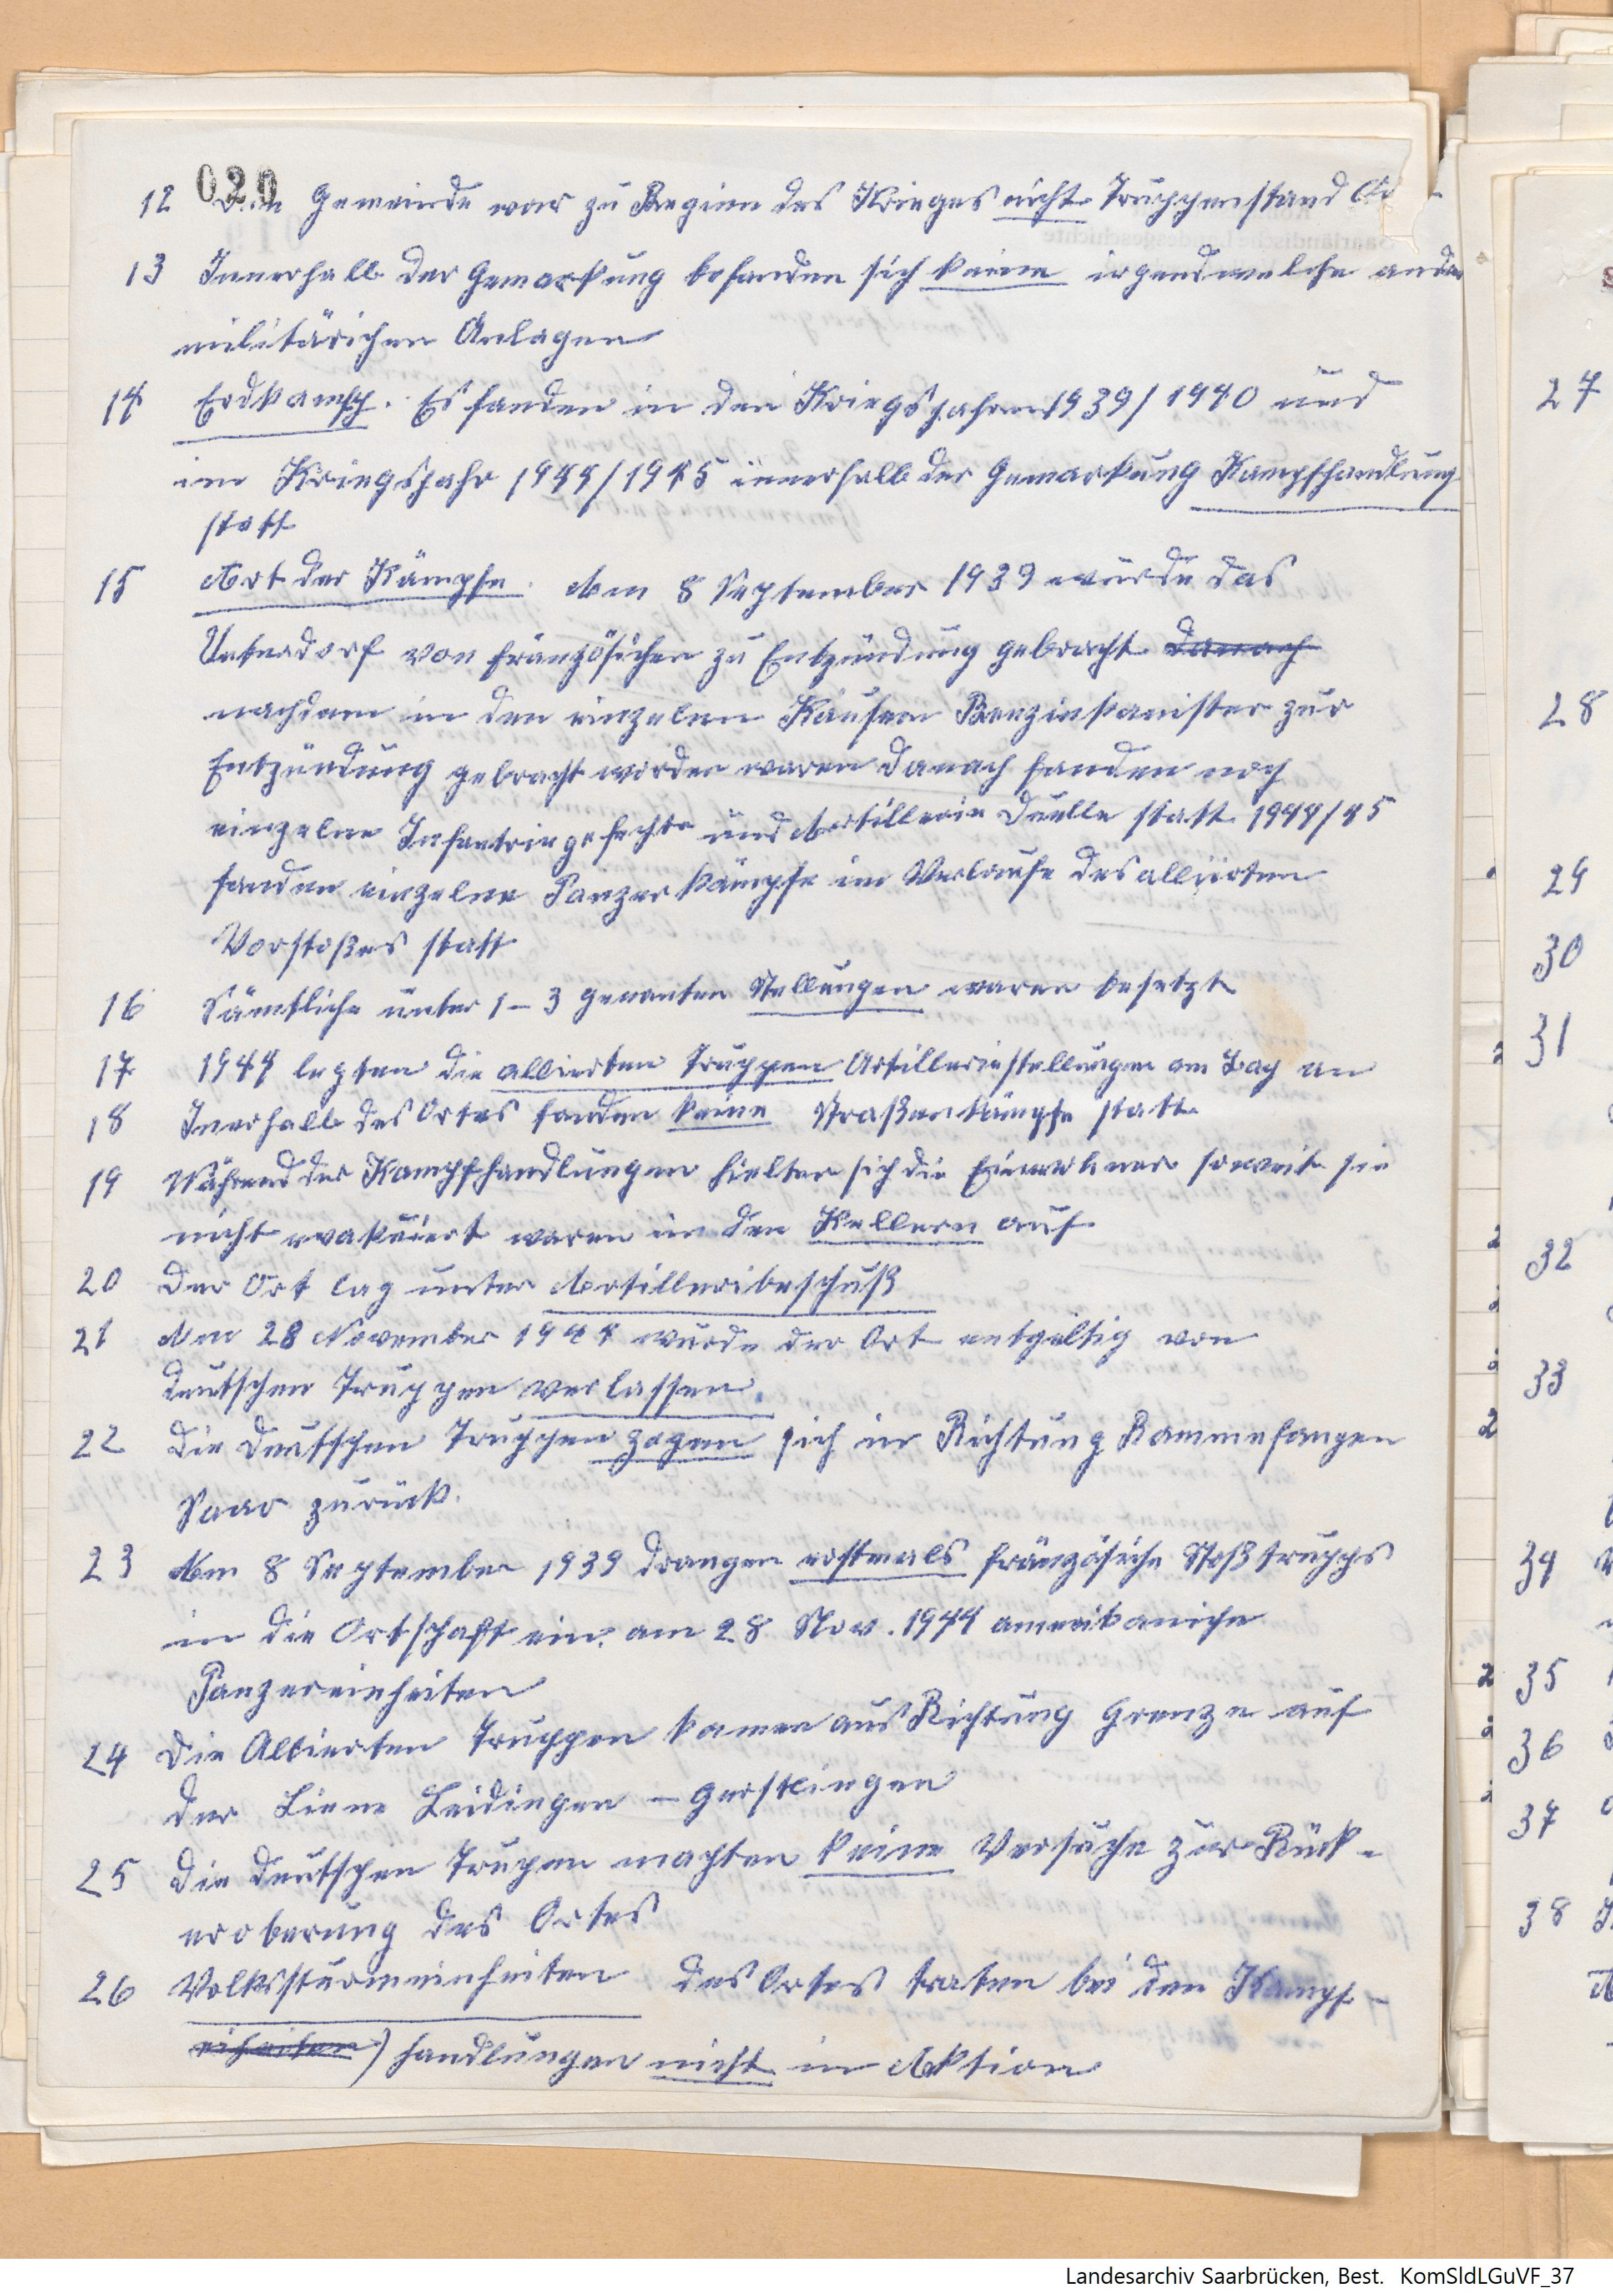 020
12 Die Gemeinde war zu Beginn des Krieges nicht Truppenstand
13 Innerhalb der Gemarkung befanden sich keine irgendwelche ander
militärichen Anlagen
14 Erdkampf. Es fanden in den Kriegsjahren 1939/1940 und
im Kriegsjahr 1944/1945 innerhalb der Gemarkung Kampfhandlung
statt
15 Art der Kämpfe. Am 8 September 1939 wurde das
Unterdorf von französichen zu Entzündung gebracht danach
nachdem in den einzelnen Häusern Benzinkanister zur
Entzündung gebracht worden waren Danach fanden noch
einzelne Infantriegefechte und Artillerie Duelle statt 1944/45
fanden einzelne Panzerkämpfe im Verlaufe des alliirten
Vorstoßes statt
16 Sämtliche unter 1-3 genanten Stellungen waren besetzt
17 1944 legten die allierten Truppen Artilleriestellungen am Tag an
18 Inerhalb des Ortes fanden keine Straßenkämpfe statt
19 Während der Kampfhandlungen hielten sich die Einwohner soweit sie
nicht evakuiert waren in den Kellern auf
20 Der Ort lag unter Artilleribeschuß
21 Am 28 November 1944 wurde der Ort entgeltig von
deutschen Truppen verlassen.
22 Die Deutschen Truppen zogen sich in Richtung Rammefangen
Saar zurück.
23 Am 8 September 1939 drangen erstmals französiche Stoßtrupps
in die Ortschaft ein. am 28 Nov. 1944 amerikaniche
Panzereinheiten
24 Die Allierten Truppen kamen aus Richtung Grenze auf
der Liene Leidingen – Gerstlingen
25 Die Deutschen Trupen machten keine Versuche zur Rück-
eroberung des Ortes
26 Volkssturmeinheiten des Ortes traten bei den Kampf-
eiheiten) handlungen nicht in Aktion
27
28
29
30
31
32
33
34
35
36
37
38
Landesarchiv Saarbrücken, Best. KomSldLGuVF_37